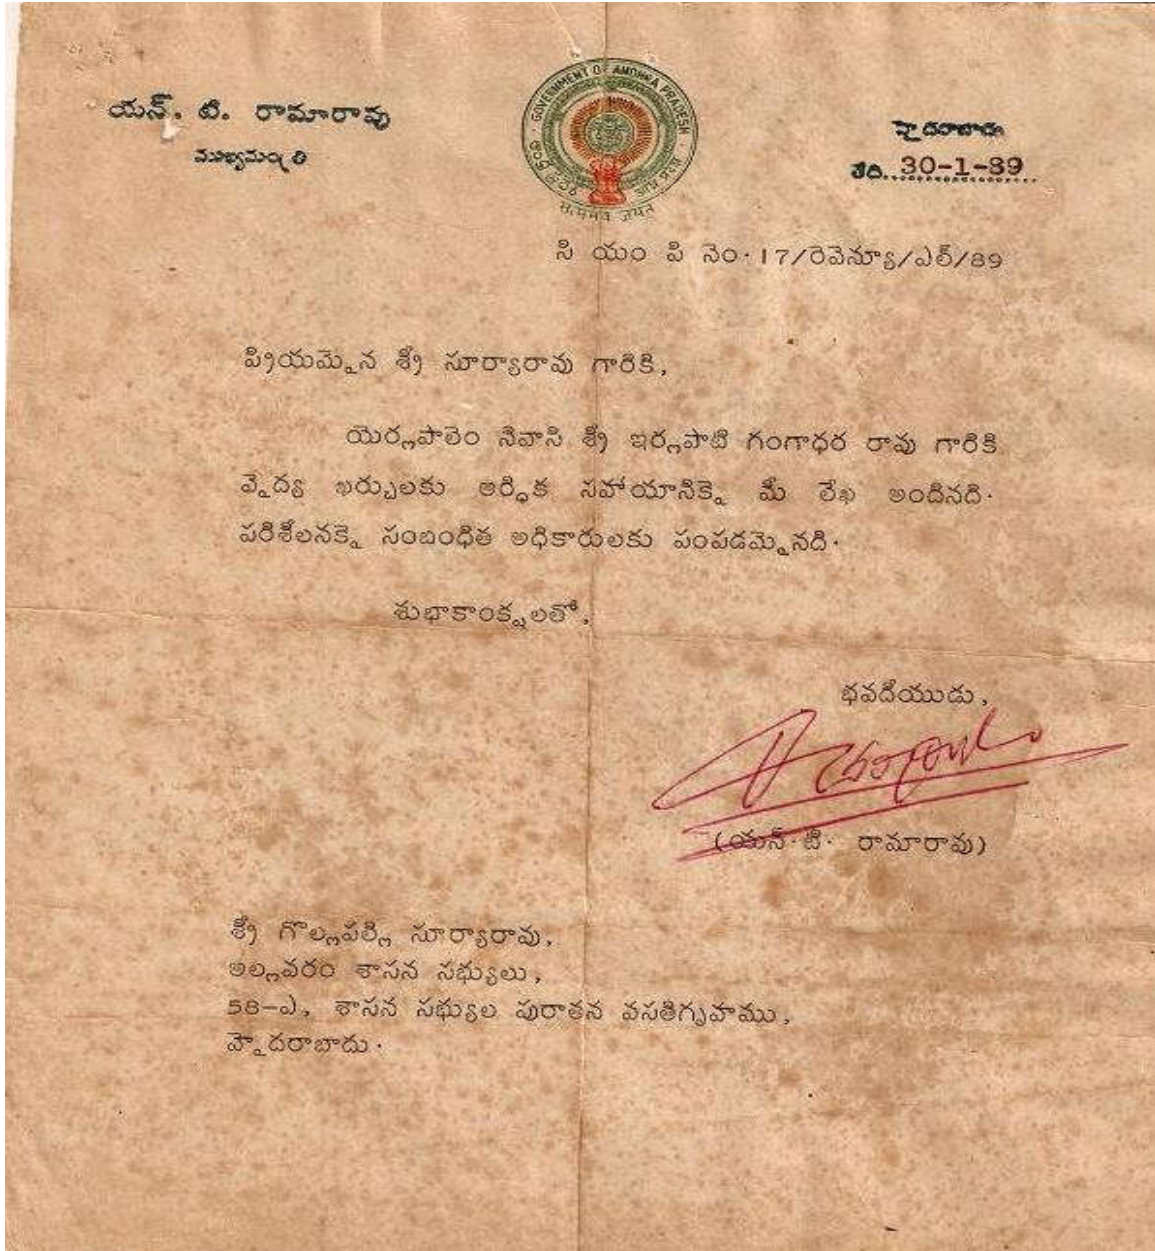 యన్. టి. రామారావు
ముఖ్యమంత్రి
GOVERNMENT OF ANDHRA PRADESH
सत्यमेव जयते
హైదరాబాదు
తేది..30-1-89
సి యం పి నెం. 17/రెవెన్యూ/ఎల్/89
ప్రియమైన శ్రీ సూర్యారావు గారికి,
యెర్లపాలెం నివాసి శ్రీ ఇర్లపాటి గంగాధర రావు గారికి
వైద్య ఖర్చులకు ఆర్ధిక సహాయానికై మీ లేఖ అందినది.
పరిశీలనకై సంబంధిత అధికారులకు పంపడమైనది.
శుభాకాంక్షలతో,
భవదీయుడు,
(యన్.టి. రామారావు)
శ్రీ గొల్లపల్లి సూర్యారావు,
అల్లవరం శాసన సభ్యులు,
58-ఎ, శాసన సభ్యుల పురాతన వసతిగృహము,
హైదరాబాదు.